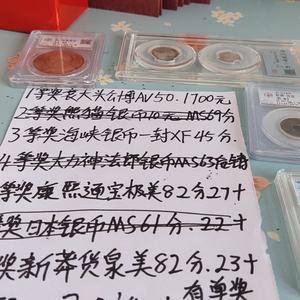 1等奖袁大头公博AV50.1700元
2等奖熊猫银币10元MS69分
3等奖海峡银币一封XF45分.
4等奖大力神法郎银币MS63
等奖康熙通宝极美82分27+
奖日本银币MS61分.22+
奖新莽货泉美82分.23+
有单奖